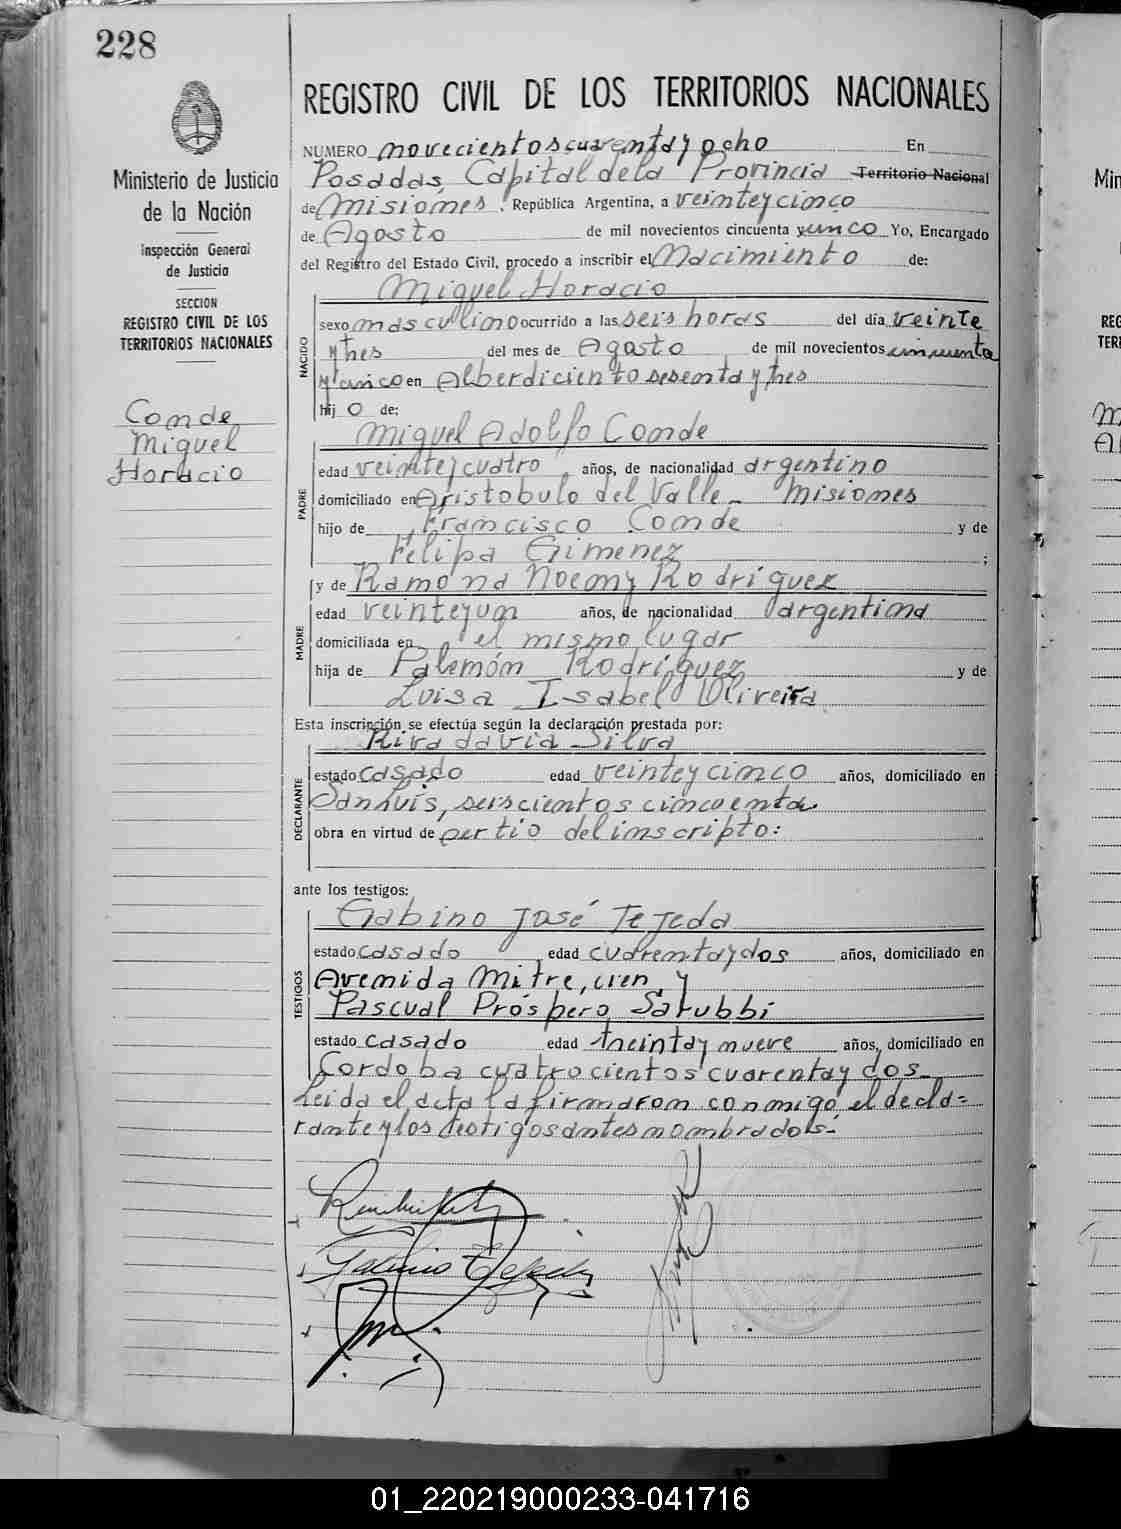 228
Ministerio de Justicia
de la Nación
Inspección General
de Justicia
SECCION
REGISTRO CIVIL DE LOS
TERRITORIOS NACIONALES
Conde
Miguel
Horacio
REGISTRO CIVIL DE LOS TERRITORIOS NACIONALES
NUMERO novecientos cuarenta y ocho En
Posadas, Capital de la Provincia Territorio Nacional
de Misiones, República Argentina, a veinte y cinco
de Agosto de mil novecientos cincuenta y cinco Yo, Encargado
del Registro del Estado Civil, procedo a inscribir el Nacimiento de:
Miguel Horacio
NACIDO
sexo masculino ocurrido a las seis horas del día veinte
y tres del mes de Agosto de mil novecientos cincuenta
y cinco en Alberdi ciento sesenta y tres
hijo de:
Miguel Adolfo Conde
PADRE
edad veinte y cuatro años, de nacionalidad argentino
domiciliado en Aristobulo del Valle - Misiones
hijo de Francisco Conde y de
Felipa Gimenez ;
y de Ramona Noemy Rodriguez
MADRE
edad veinte y un años, de nacionalidad argentina
domiciliada en el mismo lugar
hija de Palemón Rodriguez y de
Luisa Isabel Oliveira
Esta inscripción se efectúa según la declaración prestada por:
Rivadavia Silva
DECLARANTE
estado casado edad veinte y cinco años, domiciliado en
San Luis, seiscientos cincuenta
obra en virtud de ser tio del inscripto:
ante los testigos:
Gabino José Tejeda
TESTIGOS
estado casado edad cuarenta y dos años, domiciliado en
Avenida Mitre, cien y
Pascual Próspero Sarubbi
estado casado edad treinta y nueve años, domiciliado en
Cordoba cuatrocientos cuarenta y dos-
Leida el acta la firmaron conmigo, el decla=
rante y los testigos antes nombrados.-
Gabino Tejeda
Min
REG
TERI
01_220219000233-041716